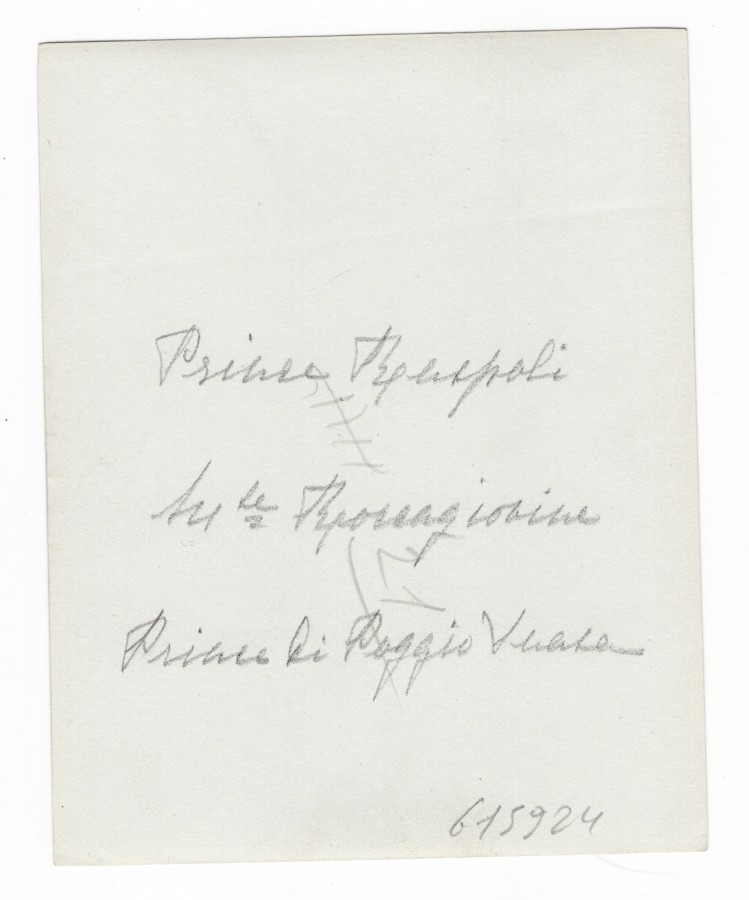 Prince Ruspoli
Mis Roccagiovine
Prince di Poggio Suasa
615924